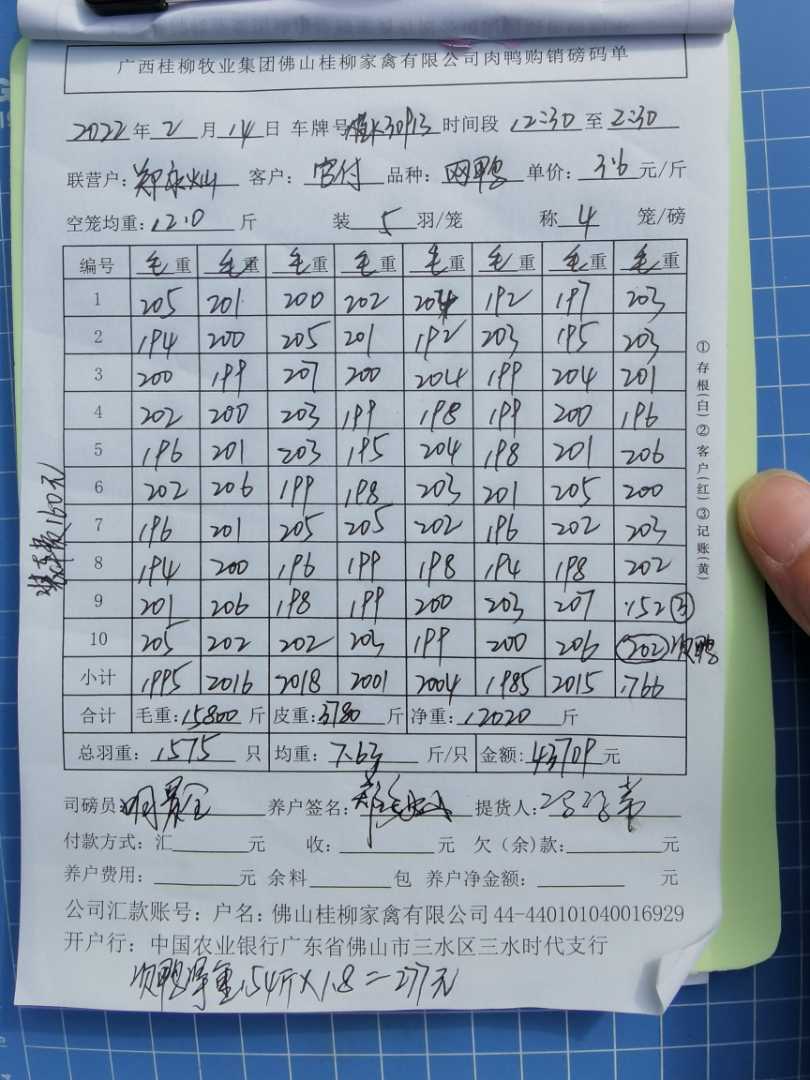 广西桂柳牧业集团佛山桂柳家禽有限公司肉鸭购销磅码单
2022年2月14日 车牌号 30913 时间段 12:30 至 2:30
联营户: 客户: 品种: 单价: 3.6 元/斤
空笼均重: 12.0 斤 装 5 羽/笼 称 4 笼/磅
编号 毛重 毛重 毛重 毛重 毛重 毛重 毛重 毛重
1 205 201 200 202 204 192 197 203
2 194 200 205 201 192 203 195 203
3 200 199 207 200 204 199 204 201
4 202 200 203 199 198 199 200 196
5 196 201 203 195 204 198 201 206
6 202 206 199 198 203 201 205 200
7 196 201 205 205 202 196 202 203
8 194 200 196 199 198 194 198 202
9 201 206 198 199 200 203 207 152 ③
10 205 202 202 203 199 200 206 202 次鸭
小计 1995 2016 2018 2001 2004 1985 2015 1766
合计 毛重: 15800 斤 皮重: 3780 斤 净重: 12020 斤
总羽重: 1575 只 均重: 7.63 斤/只 金额: 43709 元
司磅员: 养户签名: 提货人:
付款方式: 汇 元 收: 元 欠(余)款: 元
养户费用: 元 余料 包 养户净金额: 元
公司汇款账号: 户名: 佛山桂柳家禽有限公司 44-440101040016929
开户行: 中国农业银行广东省佛山市三水区三水时代支行
次鸭净重154斤×1.8=277元
①存根(白)②客户(红)③记账(黄)
装车费160元